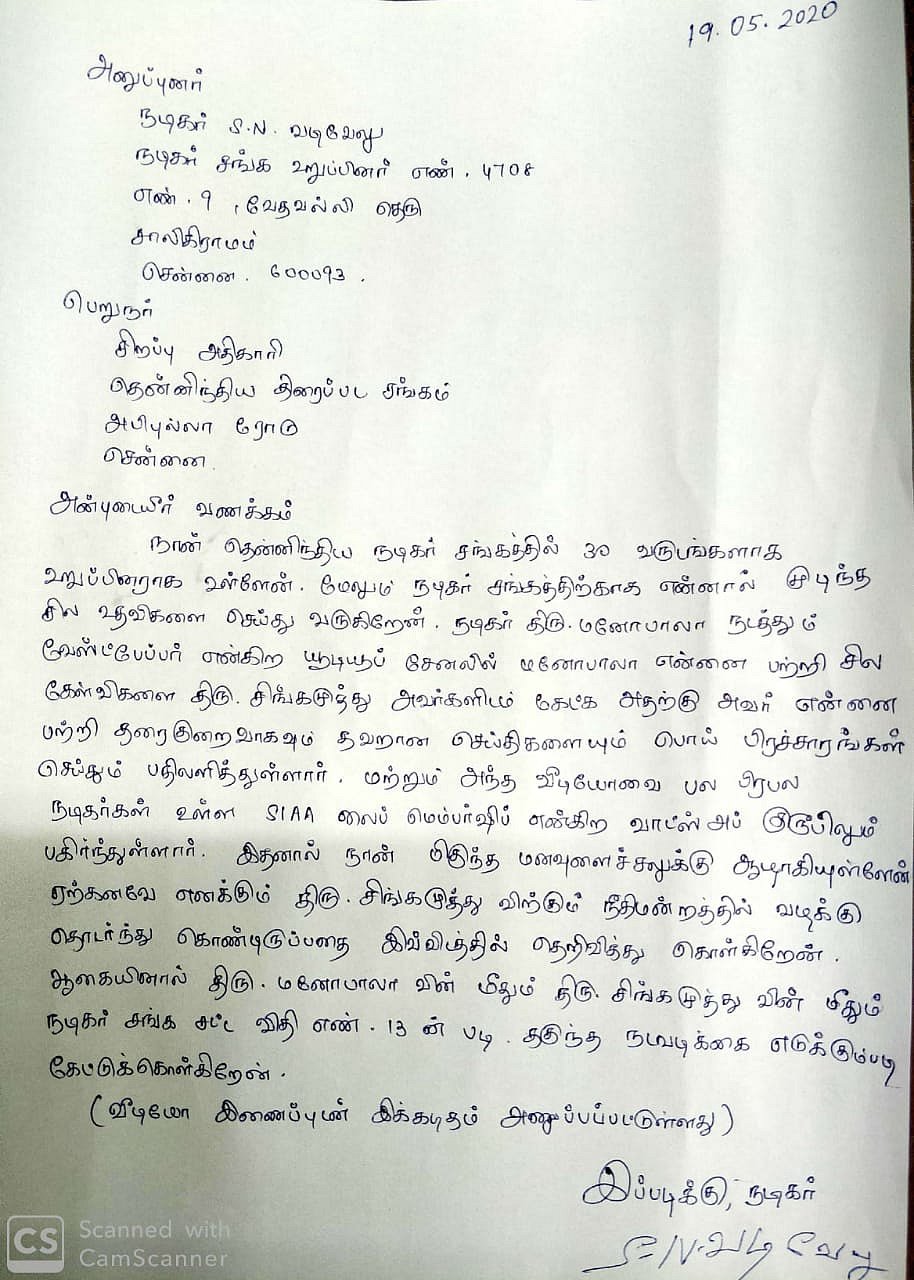 19.05.2020
அனுப்புனர்
நடிகர் S.N. வடிவேலு
நடிகர் சங்க உறுப்பினர் எண். 4708
எண். 9, வேதவல்லி தெரு
சாலிகிராமம்
சென்னை. 600093.
பெறுநர்
சிறப்பு அதிகாரி
தென்னிந்திய திரைப்பட சங்கம்
அபிபுல்லா ரோடு
சென்னை.
அன்புடையீர் வணக்கம்
நான் தென்னிந்திய நடிகர் சங்கத்தில் 30 வருடங்களாக
உறுப்பினராக உள்ளேன். மேலும் நடிகர் சங்கத்திற்காக என்னால் முடிந்த
சில உதவிகளை செய்து வருகிறேன். நடிகர் திரு. மனோபாலா நடத்தும்
வேஸ்ட்பேப்பர் என்கிற யூடியூப் சேனலில் மனோபாலா என்னை பற்றி சில
கேள்விகளை திரு. சிங்கமுத்து அவர்களிடம் கேட்க அதற்கு அவர் என்னை
பற்றி தரைகுறைவாகவும் தவறான செய்திகளையும் பொய் பிரச்சாரங்கள்
செய்தும் பதிலளித்துள்ளார். மற்றும் அந்த வீடியோவை பல பிரபல
நடிகர்கள் உள்ள SIAA லைப் மெம்பர்ஷிப் என்கிற வாட்ஸ் அப் குரூபிலும்
பகிர்ந்துள்ளார். இதனால் நான் மிகுந்த மனவுளைச்சலுக்கு ஆளாகியுள்ளேன்
ஏற்கனவே எனக்கும் திரு. சிங்கமுத்து விற்கும் நீதிமன்றத்தில் வழக்கு
தொடர்ந்து கொண்டிருப்பதை இவ்விடத்தில் தெரிவித்து கொள்கிறேன்.
ஆகையினால் திரு. மனோபாலா வின் மீதும் திரு. சிங்கமுத்து வின் மீதும்
நடிகர் சங்க சட்ட விதி எண். 13 ன் படி. தகுந்த நடவடிக்கை எடுக்கும்படி
கேட்டுக்கொள்கிறேன்.
(வீடியோ இணைப்புடன் இக்கடிதம் அனுப்பப்பட்டுள்ளது)
இப்படிக்கு, நடிகர்
S.N. வடிவேலு
CS Scanned with
CamScanner